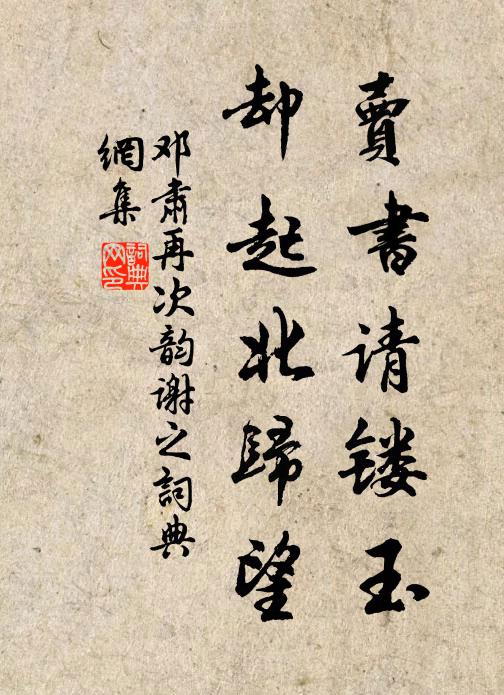 賣書请镂玉
却起北歸望
邓肃再次韵谢之詞典
網集
詞典网印